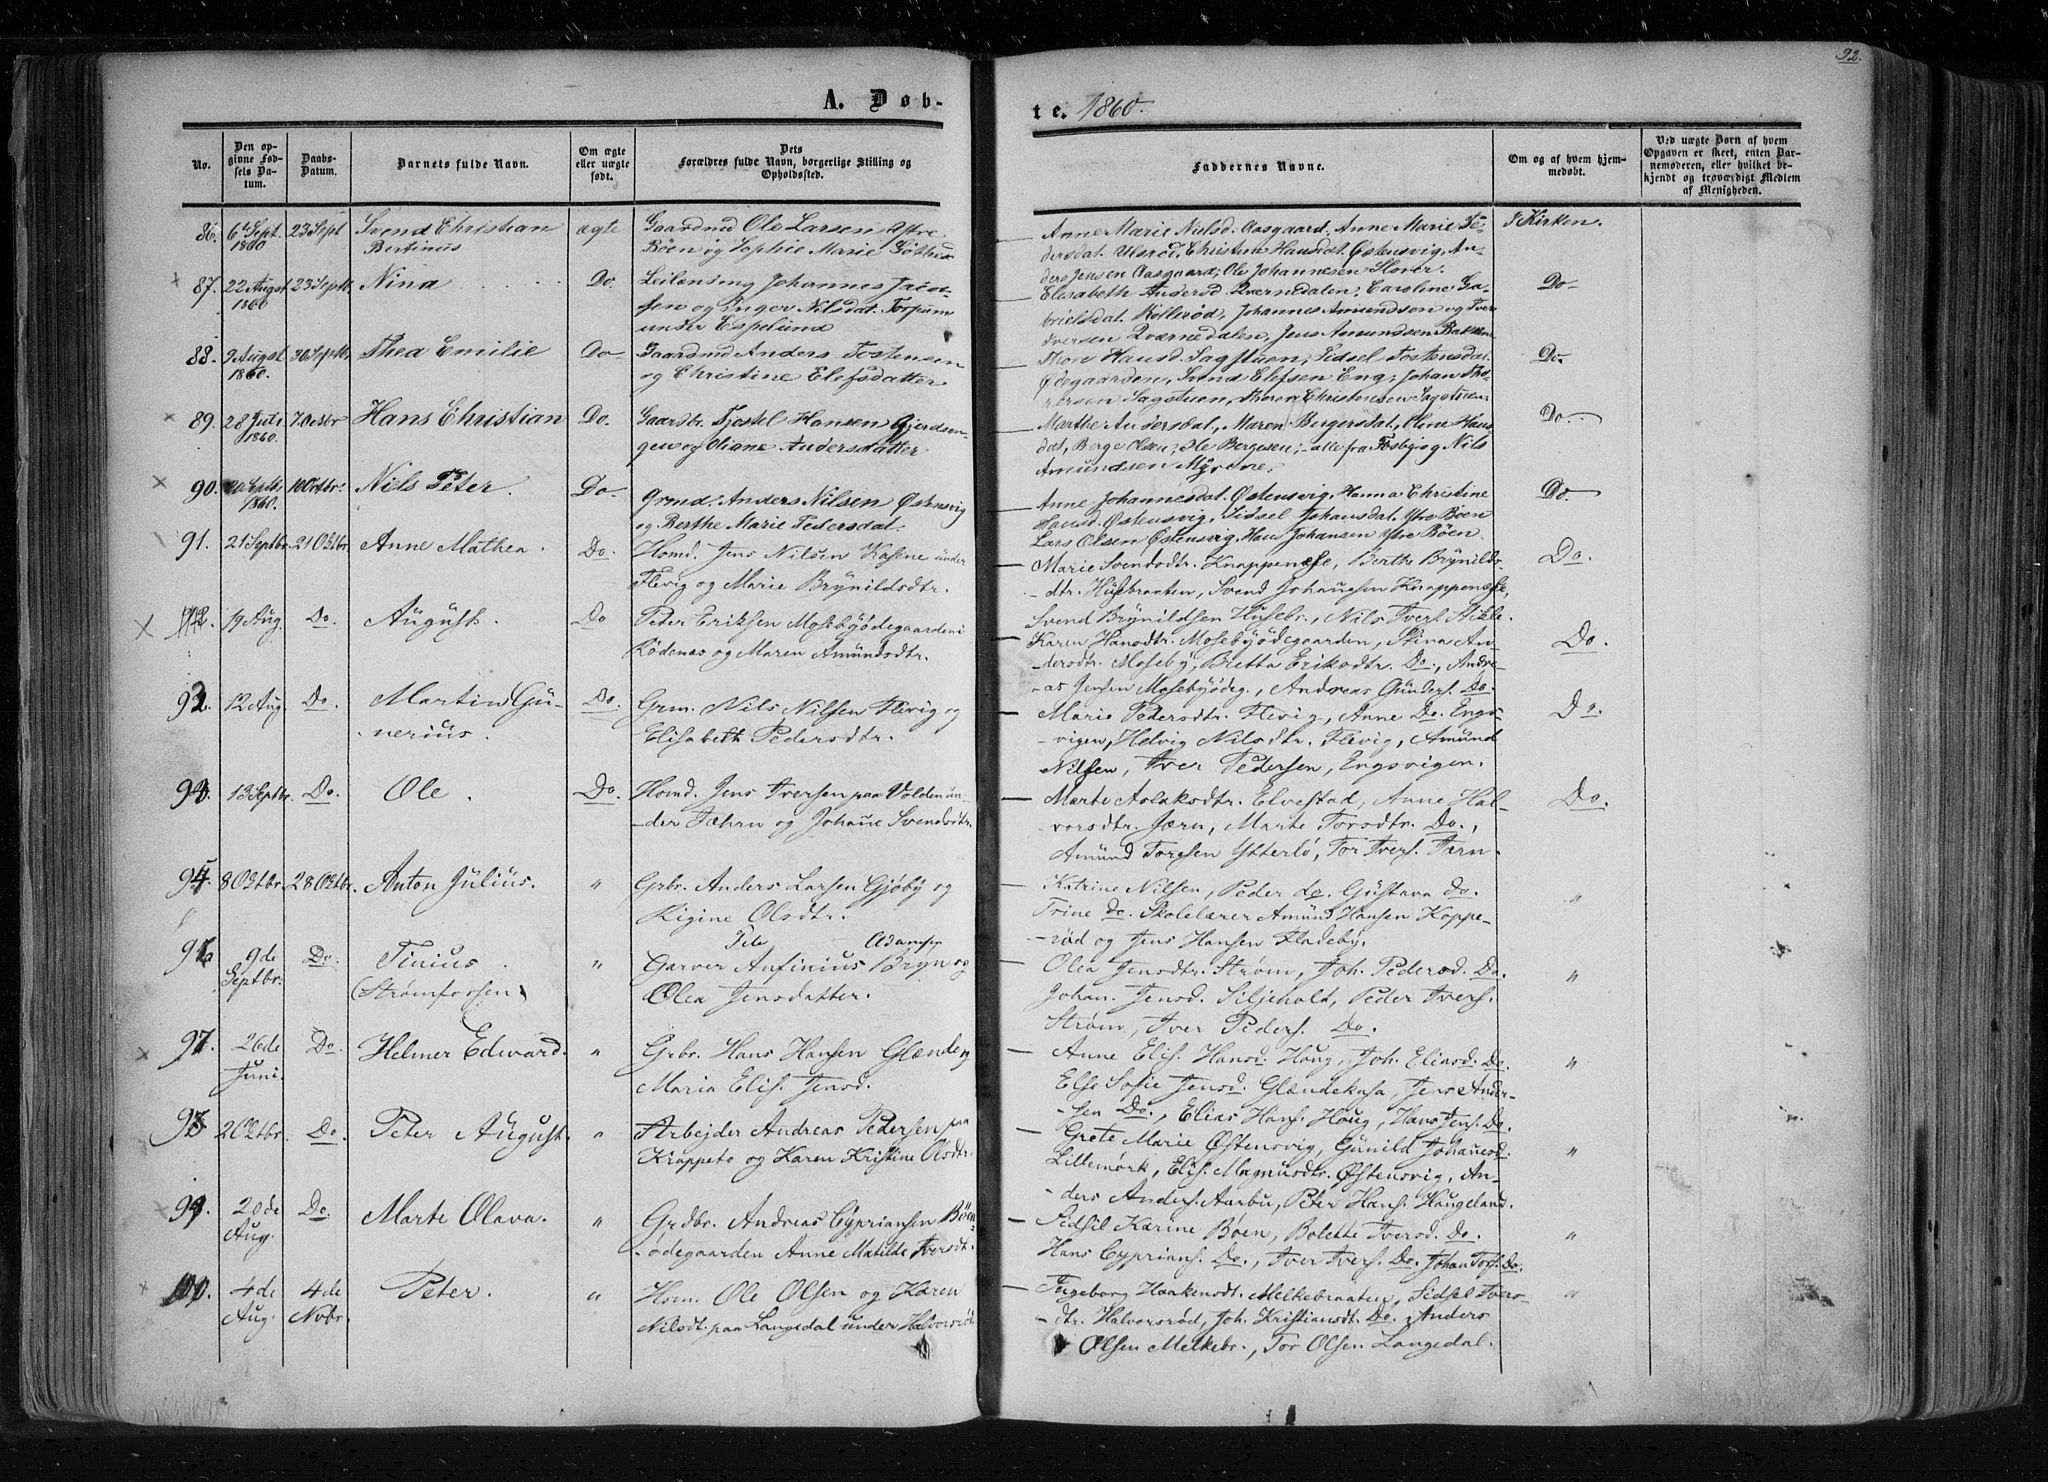 92.
A. Døb-
te. 1860.
No.
Den opgivne Fødsels Datum.
Daabs-Datum.
Barnets fulde Navn.
Om ægte eller uægte født.
Dets Forældres fulde Navn, borgerlige Stilling og Opholdssted.
Faddernes Navne.
Om og af hvem hjemmedøbt.
Ved uægte Børn af hvem Opgaven er skeet, enten Barnemoderen, eller hvilket bekjendt og troværdigt Medlem af Menigheden.
86. 6te Sept. 1860 23 Sept Svend Christian Bertinus ægte
Gaardmd Ole Larsen Ytre
Böen og Sophie Marie
Anne Marie Nilsd. Aasgaard, Anne Marie Pe-
dersdat. Ulsröd, Christine Hansdat. Östensvig, An-
ders Jensen Aasgaard, Ole Johannesen
I Kirken.
87. 22 August 1860 23 Septb. Nina Do.
Johannes Jacob-
sen og Inger Nilsdat. Torpum
under Espelund
Elisabeth Andersd. Qvernedalen, Caroline Ga-
brielsdat. Kollerød, Johannes Amundsen og Iver
Iversen Qværnedalen, Jens Amundsen Bakken
Do
88. 9 August 1860. 30 Septbr Thea Emilie Do
Gaardmd Anders Tostensen
og Christine Elefsdatter
Thore Hansd. Sagstuen, Sidsel Tostensdat.
Ødegaarden, Svend Elefsen Eng, Johan Tho-
rersen Sagstuen, Thorer Christensen Sagstuen
Do.
89. 28 Juli 1860. 7 Octobr Hans Christian Do.
Gaardbr. Tjostel Hansen Gjerdsen-
gen og Oliane Andersdatter
Marthe Andersdat, Maren Bergersdat, Oline Han-
dat, Berge Olsen, Ole Bergesen; alle fra Fosby og Nils
Amundsen Myrene.
Do.
90. 20 Septbr. 1860. 10 Octbr. Nils Peter. Do.
Grmd. Anders Nilsen Østensvig
og Berthe Marie Pedersdat.
Anne Johannesdat. Østensvig, Hanna Christine
Hansd. Østensvig, Sidsel Johansdat. Ytre Böen
Lars Olsen Østensvig, Hans Johansen Ytre Böen.
Do.
91. 21 Septbr. 21 Oktbr. Anne Mathea. Do.
Homd. Jens Nilsen Kasene under
Flevig og Marie Brynildsdtr.
Marie Svendsdtr. Knappenæse, Berthe Brynilds-
-dtr. Husebraaten, Svend Johansen Knappenæse,
Svend Brynildsen Husebr., Nils Ivers.
Do.
92. 19 Aug. Do. August Do
Peter Eriksen Mosebyødegaarden i
Rødenæs og Maren Amundsdtr.
Karen Hansdtr. Mosebyødegaarden, Stina An-
-dersdtr. Moseby, Bretta Eriksdtr. Do., Andre-
as Jensen Mosebyødeg., Andreas Gunders. Do.
Do.
93. 12 Aug. Do. Martin Gu-
nerius. Do.
Grm. Nils Nilsen Flevig og
Elisabeth Pedersdtr.
Marie Pedersdtr. Flevig, Anne Do. Engs-
-vigen, Helvig Nilsdtr. Flevig, Amund
Nilsen, Iver Pedersen, Engsvigen.
Do.
94. 13 Septbr. Do. Ole. Do.
Homd. Jens Iversen paa Volden un-
-der Jæhrn og Johane Svendsdtr.
Marte Aslaksdtr. Elvestad, Anne Hal-
-vorsdtr. Jærn, Marte Torsdtr. Do.,
Amund Toresen Ytterbø, Tor Ivers. Jærn.
Do.
95. 8 Oktbr. 28 Oktbr. Anton Julius. "
Grbr. Anders Larsen Gjøby og
Rigine Olsdtr.
Katrine Nilsen, Peder do. Gustava Do.
Trine do. Skolelærer Amund Hansen Koppe-
-rød og Jens Hansen Fladeby.
"
96 9de Septbr. Do. Tinius.
(Strømfossen) "
Garver Anfinius Adamsen Bryn og
Olea Jensdatter.
Olea Jensdtr. Strøm, Joh. Pedersd. Do.
Johan. Jensd. Siljeholt, Peder Ivers.
Strøm, Iver Peders. Do.
"
97. 26de Juni. Do. Helmer Edward. "
Grbr. Hans Hansen Glænde og
Maria Elis. Jensd.
Anne Elis. Hansd. Houg, Joh. Eliasd. Do.
Else Sofie Jensd. Glændekasa, Jens Ander-
-sen Do., Elias Hans. Houg, Hans Jens. Do.
"
98 2 Oktbr. Do. Peter August. "
Arbejder Andreas Pedersen paa
Krappeto og Karen Kristine Olsdtr.
Grete Marie Østensvig, Gunild Johanesd.
Lillemørk, Elis. Magnusdtr. Østensvig, An-
-ders Anders. Aarbu, Peter Hans. Haugeland.
"
99. 20de Aug. Do. Marte Olava. "
Grdbr. Andreas Cyprians en Böen-
-ødegaarden Anne Matilde Iversdt.
Sidsil Karine Böen, Bolette Iversd. Do.
Hans Cyprians. Do., Iver Ivers. Do. Johan Tors. Do.
"
100. 4de Aug. 4de Nvbr. Peter. "
Hom. Ole Olsen og Karen
Nilsdt. paa Langedal under Halvorsrød
Ingeborg Haakensdt. Melkebraaten, Sidsel Ivers-
-dtr. Halvorsrød, Joh. Kristiansdt. Do., Anders
Olsen Melkebr., Tor Olsen Langedal.
"